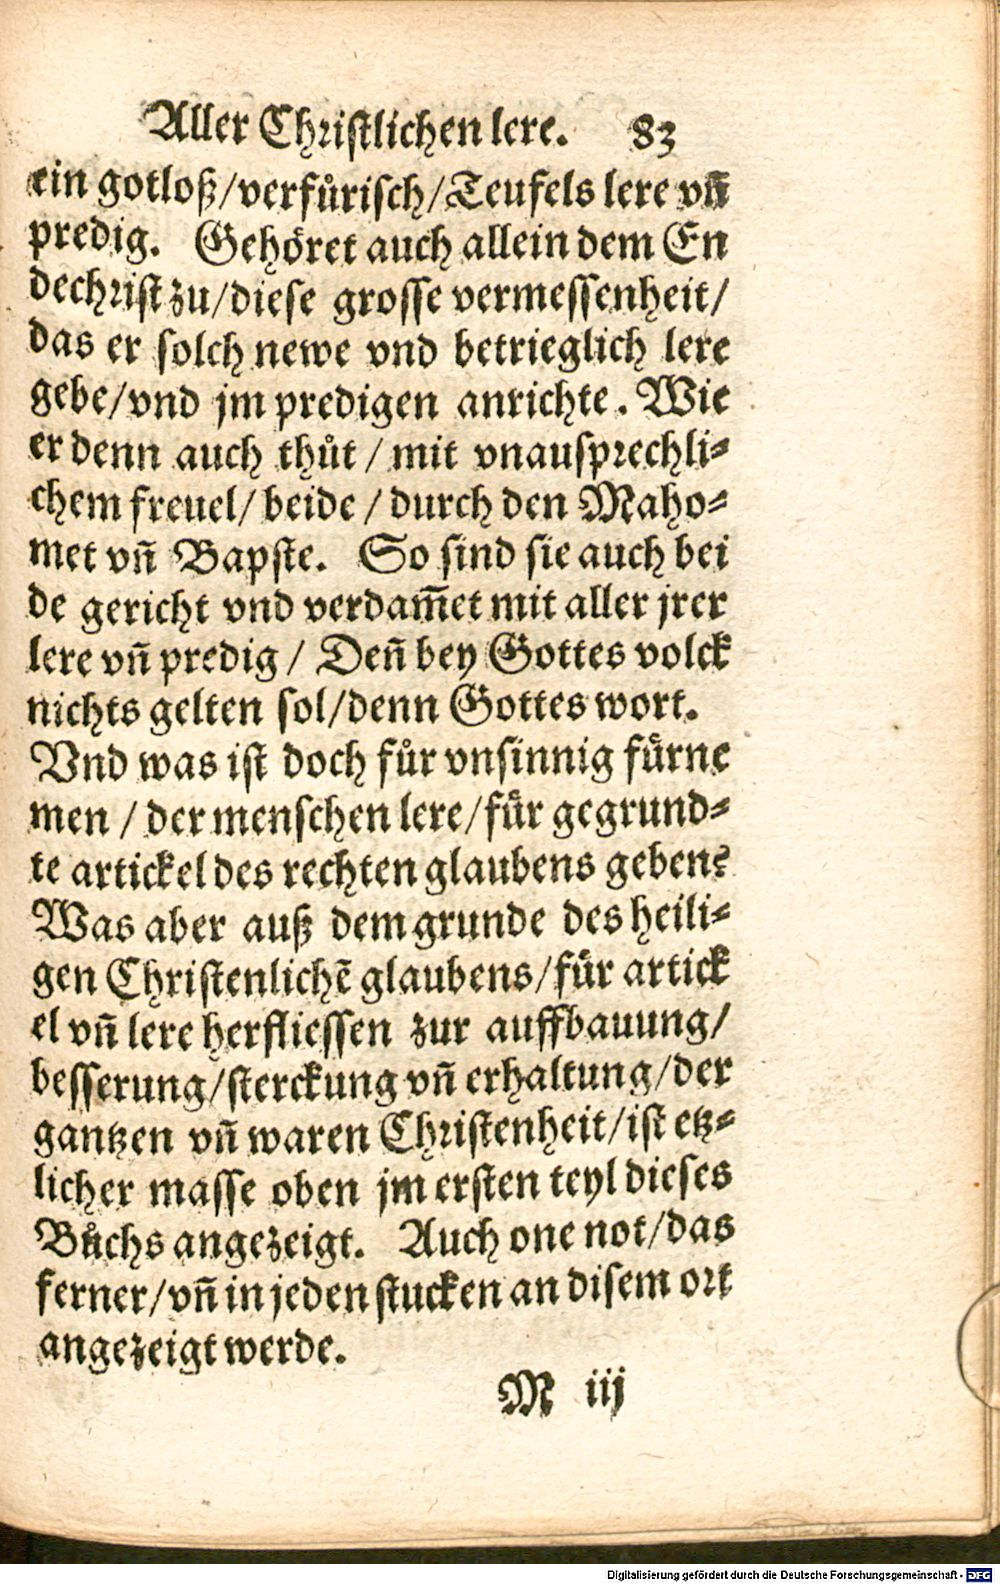 Aller Christlichen lere. 83
ein gotloß/verfuͤrisch/Teufels lere vñ
predig. Gehoͤret auch allein dem En
dechrist zu/diese grosse vermessenheit/
das er solch newe vnd betrieglich lere
gebe/vnd jm predigen anrichte. Wie
er denn auch thuͦt/mit vnausprechli⸗
chem freuel/beide/durch den Maho⸗
met vñ Bapste. So sind sie auch bei
de gericht vnd verdam̃et mit aller jrer
lere vñ predig/Deñ bey Gottes volck
nichts gelten sol/denn Gottes wort.
Vnd was ist doch fuͤr vnsinnig fuͤrne
men/der menschen lere/fuͤr gegrund⸗
te artickel des rechten glaubens geben?
Was aber auß dem grunde des heili⸗
gen Christenlichẽ glaubens/fuͤr artick
el vñ lere herfliessen zur auffbauung/
besserung/sterckung vñ erhaltung/der
gantzen vñ waren Christenheit/ist etz⸗
licher masse oben jm ersten teyl dieses
Buͦchs angezeigt. Auch one not/das
ferner/vñ in jeden stucken an disem ort
angezeigt werde.
M iij
Digitalisierung gefördert durch die Deutsche Forschungsgemeinschaft - DFG